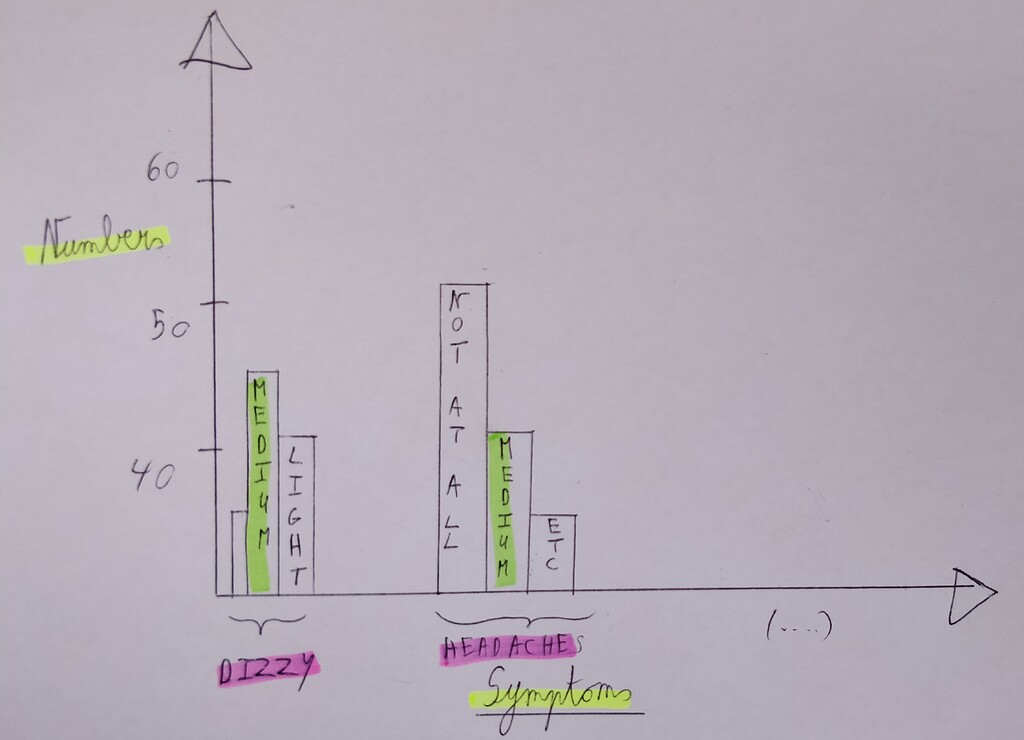 60
Numbers
50
40
MEDIUM
LIGHT
NOT AT ALL
MEDIUM
ETC
(....)
DIZZY
HEADACHES
Symptoms